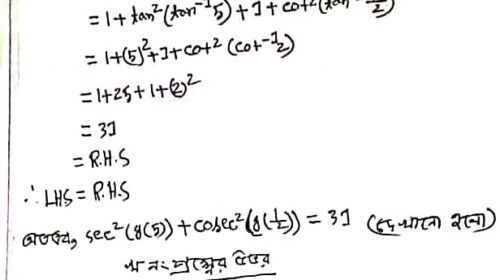 = 1 + tan²(tan⁻¹5) + 1 + cot²(tan⁻¹ 1/2)
= 1 + (5)² + 1 + cot²(cot⁻¹2)
= 1 + 25 + 1 + (2)²
= 31
= R.H.S
∴ LHS = R.H.S
অতএব, sec²(g(5)) + cosec²(g(1/2)) = 31 (দেখানো হলো)
নং প্রশ্নের উত্তর